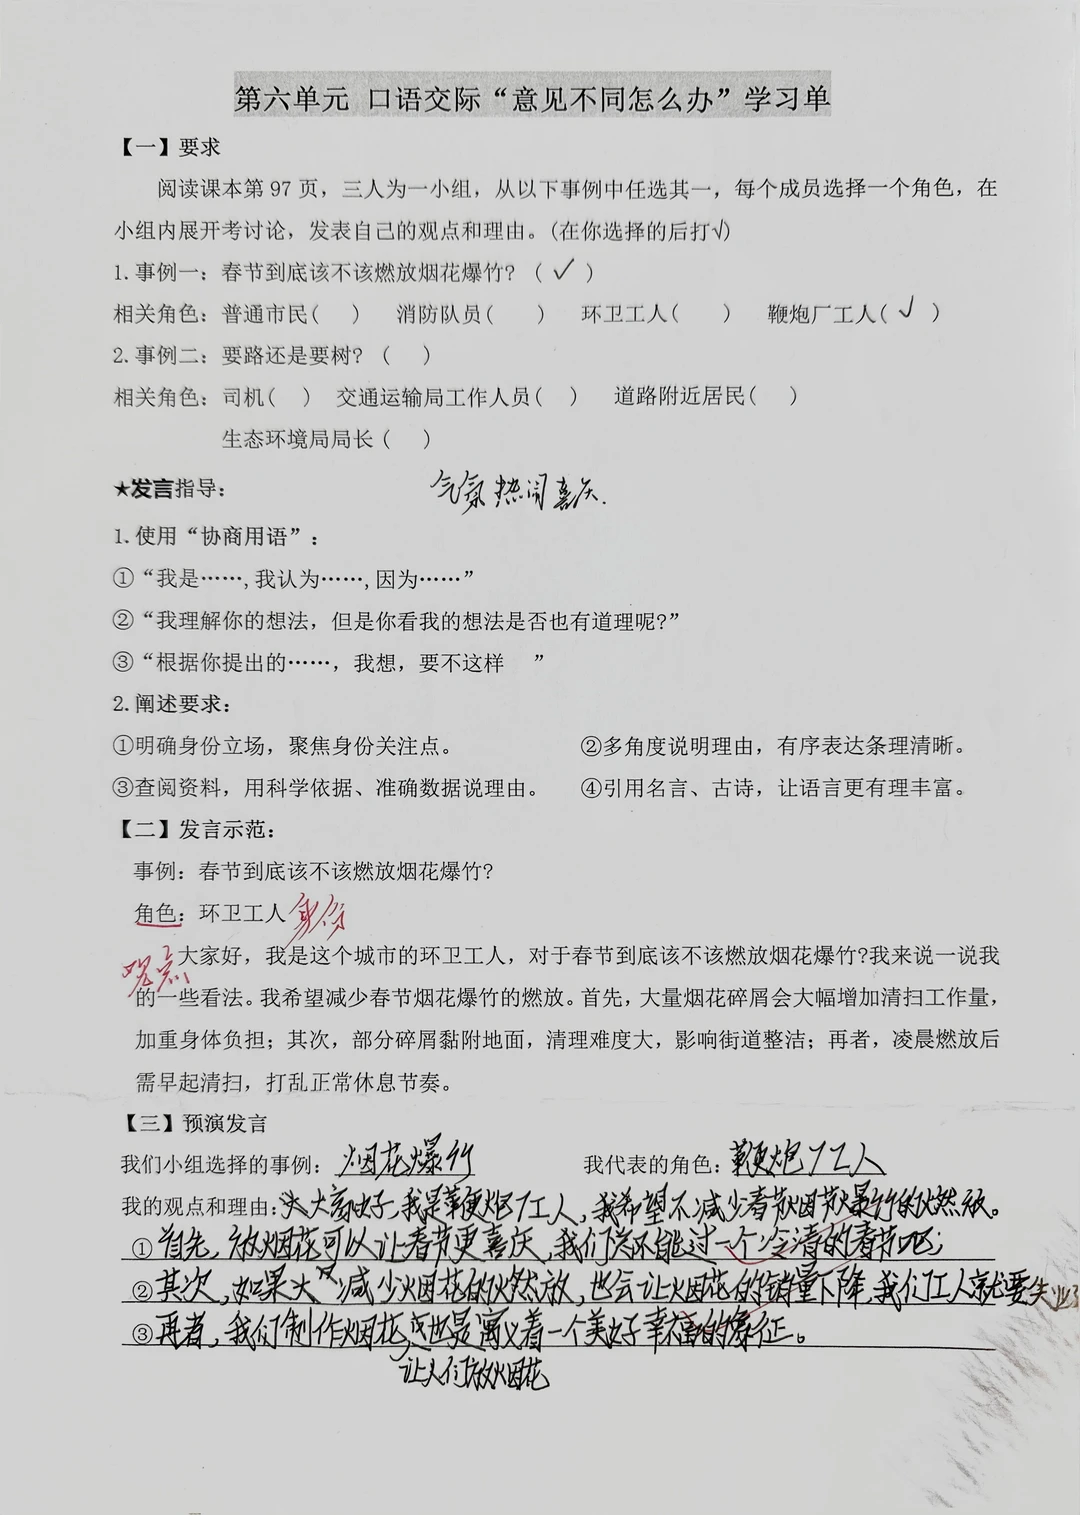 第六单元 口语交际“意见不同怎么办”学习单
【一】要求
阅读课本第97页，三人为一小组，从以下事例中任选其一，每个成员选择一个角色，在
小组内展开考讨论，发表自己的观点和理由。(在你选择的后打√)
1.事例一：春节到底该不该燃放烟花爆竹?（ ✓ ）
相关角色：普通市民(  )  消防队员(  )  环卫工人(  )  鞭炮厂工人( ✓ )
2.事例二：要路还是要树?（  ）
相关角色：司机(  )  交通运输局工作人员(  )  道路附近居民(  )
生态环境局局长(  )
★发言指导：
气氛热闹喜庆.
1.使用“协商用语”：
①“我是……,我认为……,因为……”
②“我理解你的想法，但是你看我的想法是否也有道理呢?”
③“根据你提出的……，我想，要不这样  ”
2.阐述要求：
①明确身份立场，聚焦身份关注点。  ②多角度说明理由，有序表达条理清晰。
③查阅资料，用科学依据、准确数据说理由。  ④引用名言、古诗，让语言更有理丰富。
【二】发言示范：
事例：春节到底该不该燃放烟花爆竹?
角色：环卫工人 身份
观点
大家好，我是这个城市的环卫工人，对于春节到底该不该燃放烟花爆竹?我来说一说我
的一些看法。我希望减少春节烟花爆竹的燃放。首先，大量烟花碎屑会大幅增加清扫工作量，
加重身体负担；其次，部分碎屑黏附地面，清理难度大，影响街道整洁；再者，凌晨燃放后
需早起清扫，打乱正常休息节奏。
【三】预演发言
我们小组选择的事例：烟花爆竹  我代表的角色：鞭炮厂工人
我的观点和理由：大家好，我是鞭炮厂工人，我希望不减少春节烟花爆竹的燃放。
①首先，放烟花可以让春节更喜庆，我们总不能过一个冷清的春节吧；
②其次，如果大减少烟花的燃放，也会让烟花的销量下降，我们工人就要失业了
③再者，我们制作烟花，也是寓义着一个美好幸福的象征。
让人们放烟花